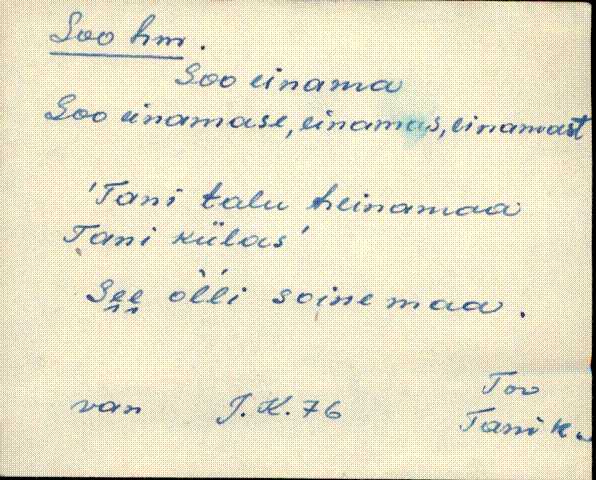 Soo hm.
Soo einama
Soo einamase, einamas, einamast
'Tani talu heinamaa
Tani külas'
See òĺli soine maa.
van J.K. 76
Tani k.